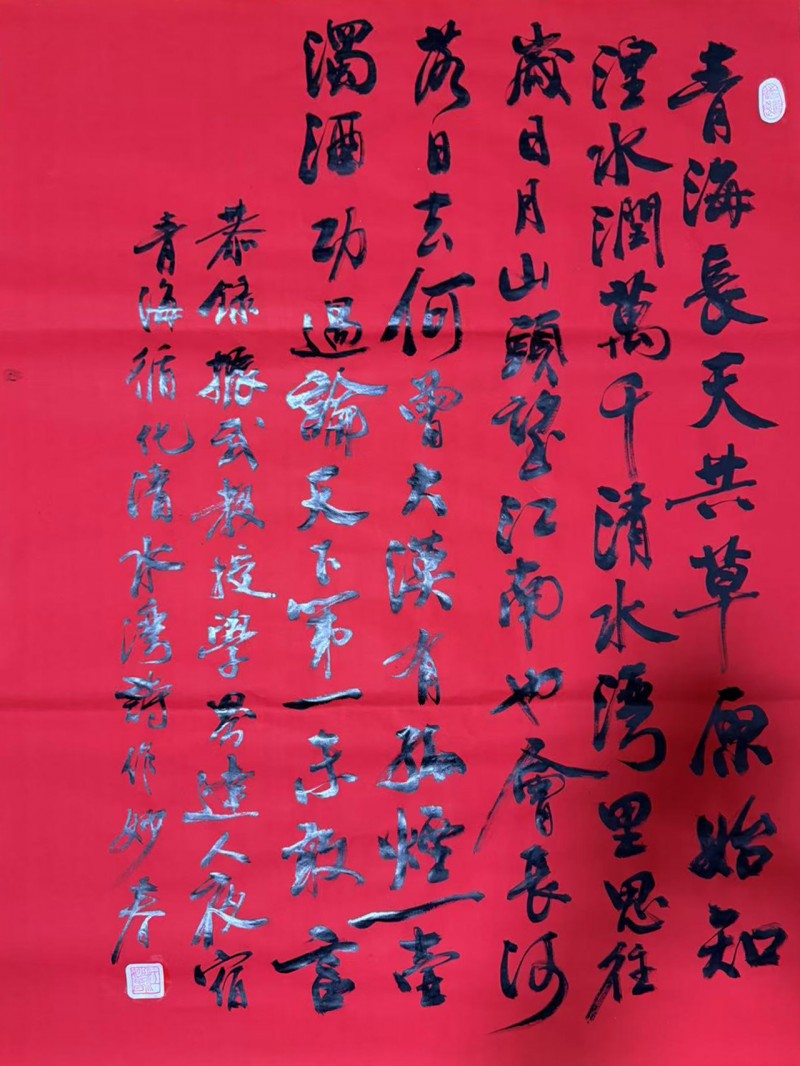 青海長天共草原始知
湟水潤萬千清水湾里思往
歲日月山頭望江南也會長河
落日去何曾大漠有孤煙一壺
濁酒功過論天下第一予敢言
恭錄振武教授學者達人夜宿
青海循化清水湾詩作妙春